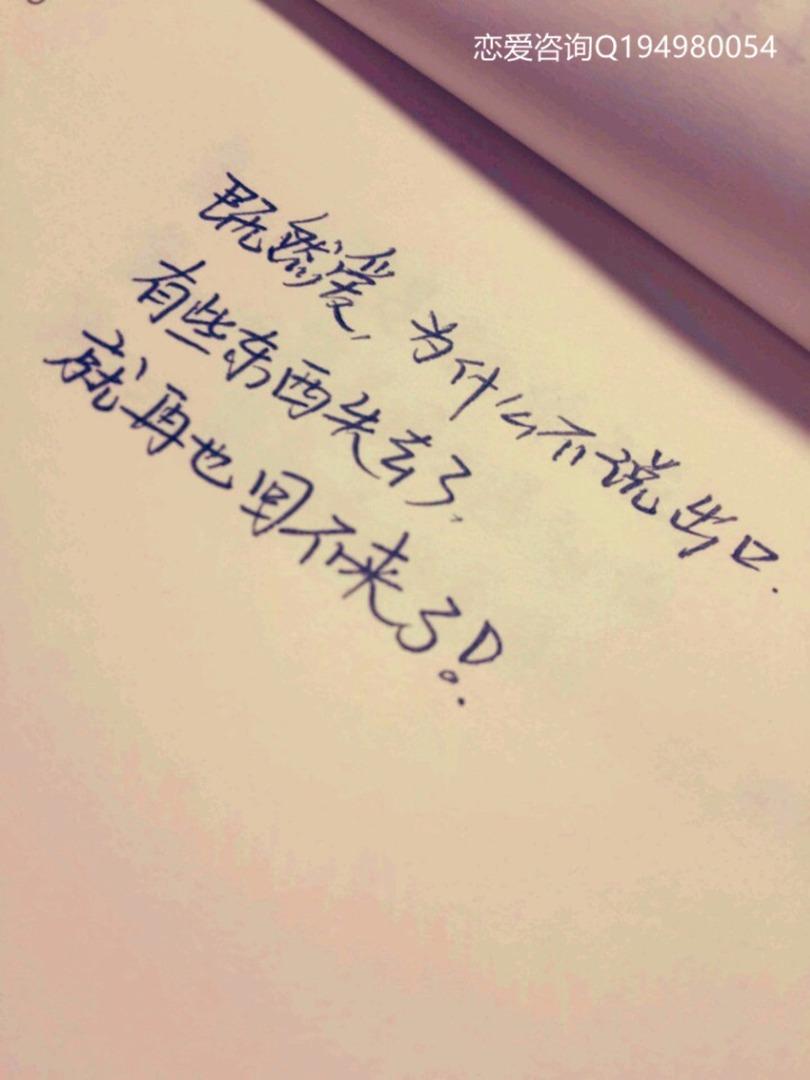 恋爱咨询Q194980054
既然爱,为什么不说出口.
有些东西失去了.
就再也回不来了!